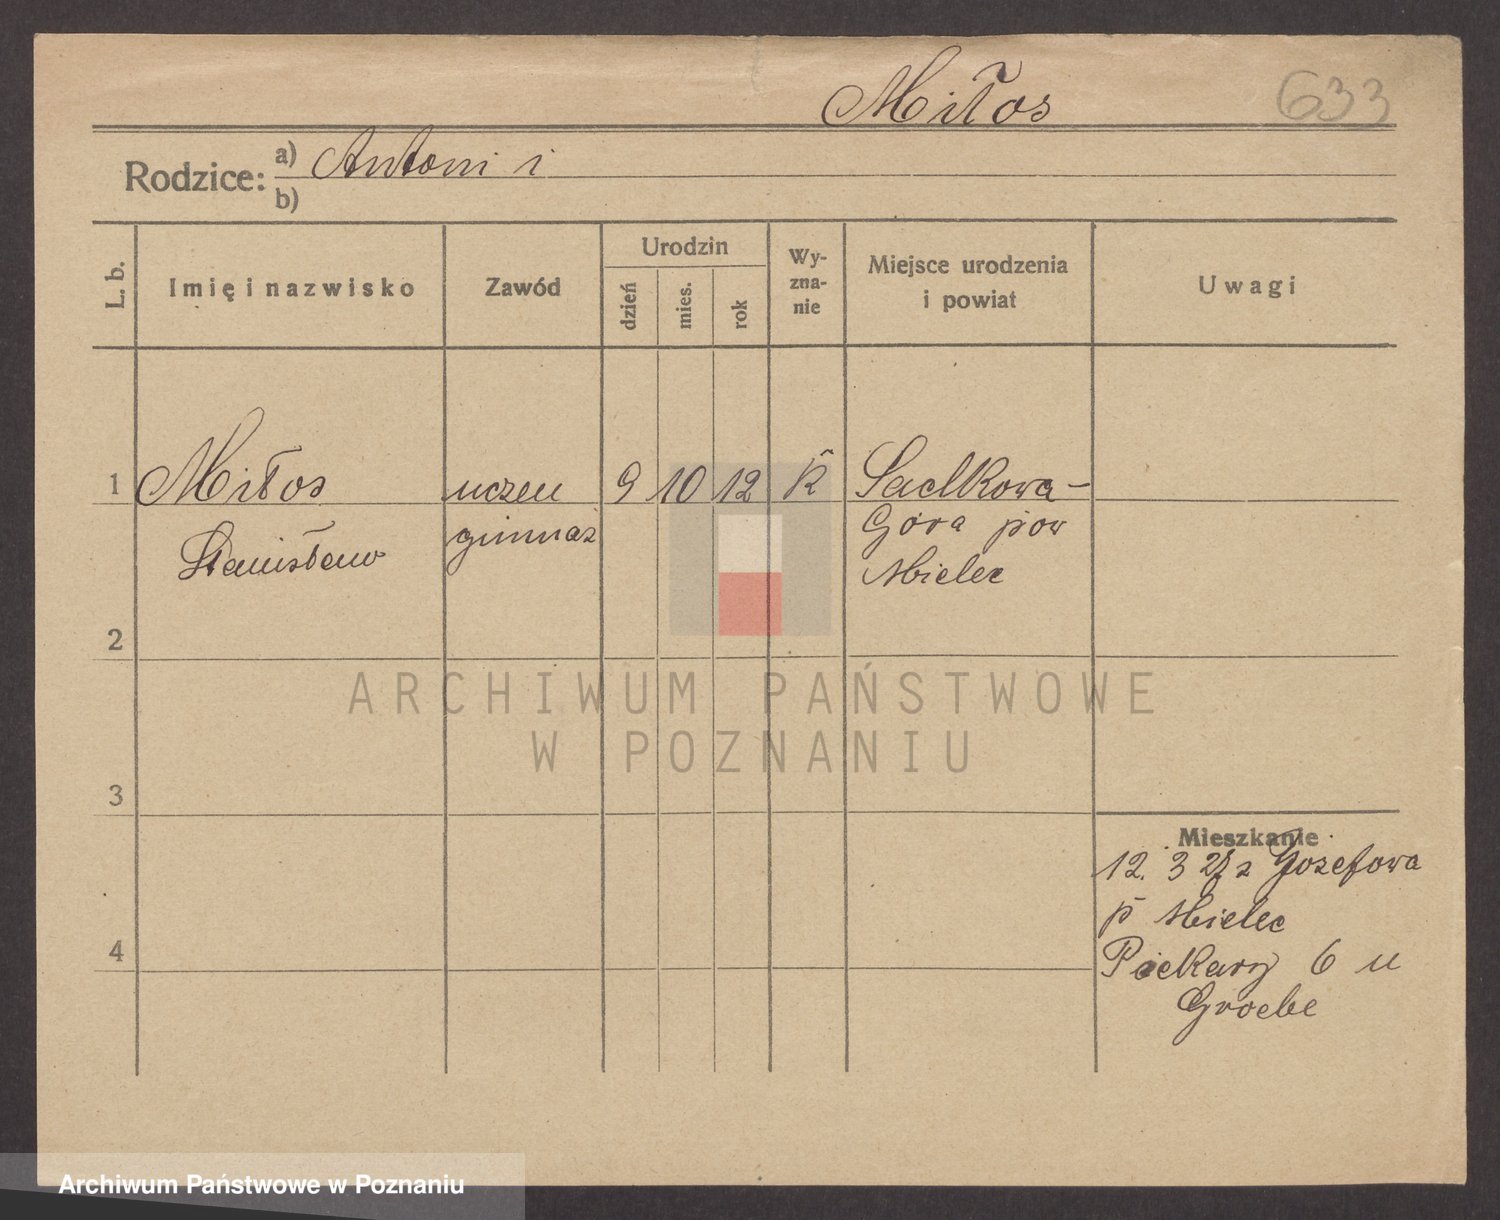 Miłos 633
Rodzice: a) Antoni i
b)
L. b.
Imię i nazwisko
Zawód
Urodzin
dzień
mies.
rok
Wy-
zna-
nie
Miejsce urodzenia
i powiat
Uwagi
1 Miłos uczeu 9 10 12 K Sadkowa-
Stanisław gimnaz Góra pow
Mielec
2
ARCHIWUM PAŃSTWOWE
W POZNANIU
3
Mieszkanie
12. 3 27 z Jozefowa
p Mielec
4
Piekary 6 u
Groebe
Archiwum Państwowe w Poznaniu